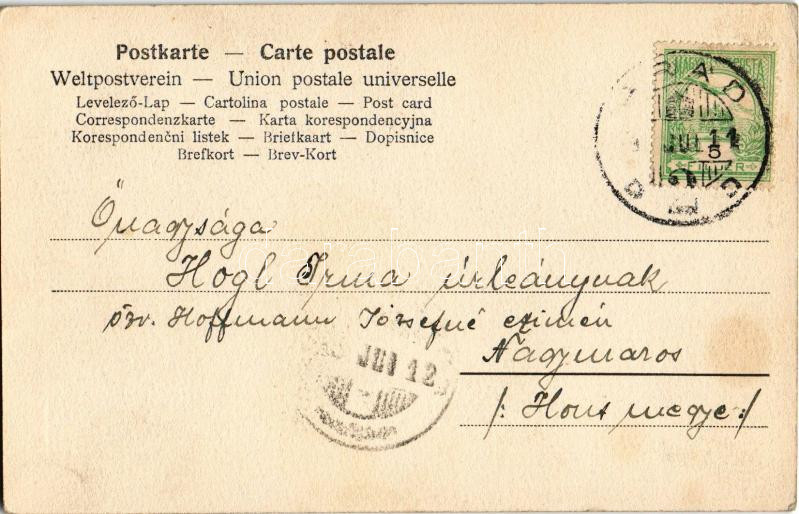 Postkarte — Carte postale
Weltpostverein — Union postale universelle
Levelező-Lap — Cartolina postale — Post card
Correspondenzkarte — Karta korespondencyjna
Korespondenční listek — Brietkaart — Dopisnice
Brefkort — Brev-Kort
ARAD
JUL 11
5
Őnagysága
Hogl Irma úrleánynak
özv. Hoffmann Józsefné czimén
Nagymaros
/: Hont megye :/
JUL 12